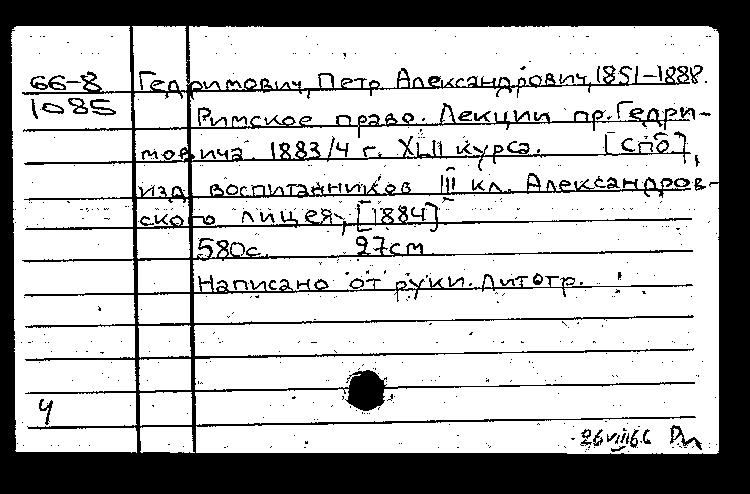 66-8 Гедримович, Петр Александрович, 1851-1888.
1085 Римское право. Лекции пр. Гедри-
мовича 1883/4 г. XLII курса. [СПб],
изд. воспитанников III кл. Александров-
ского лицея, [1884]
580с. 27см
Написано от руки. Литогр.
4
26 VIII 66